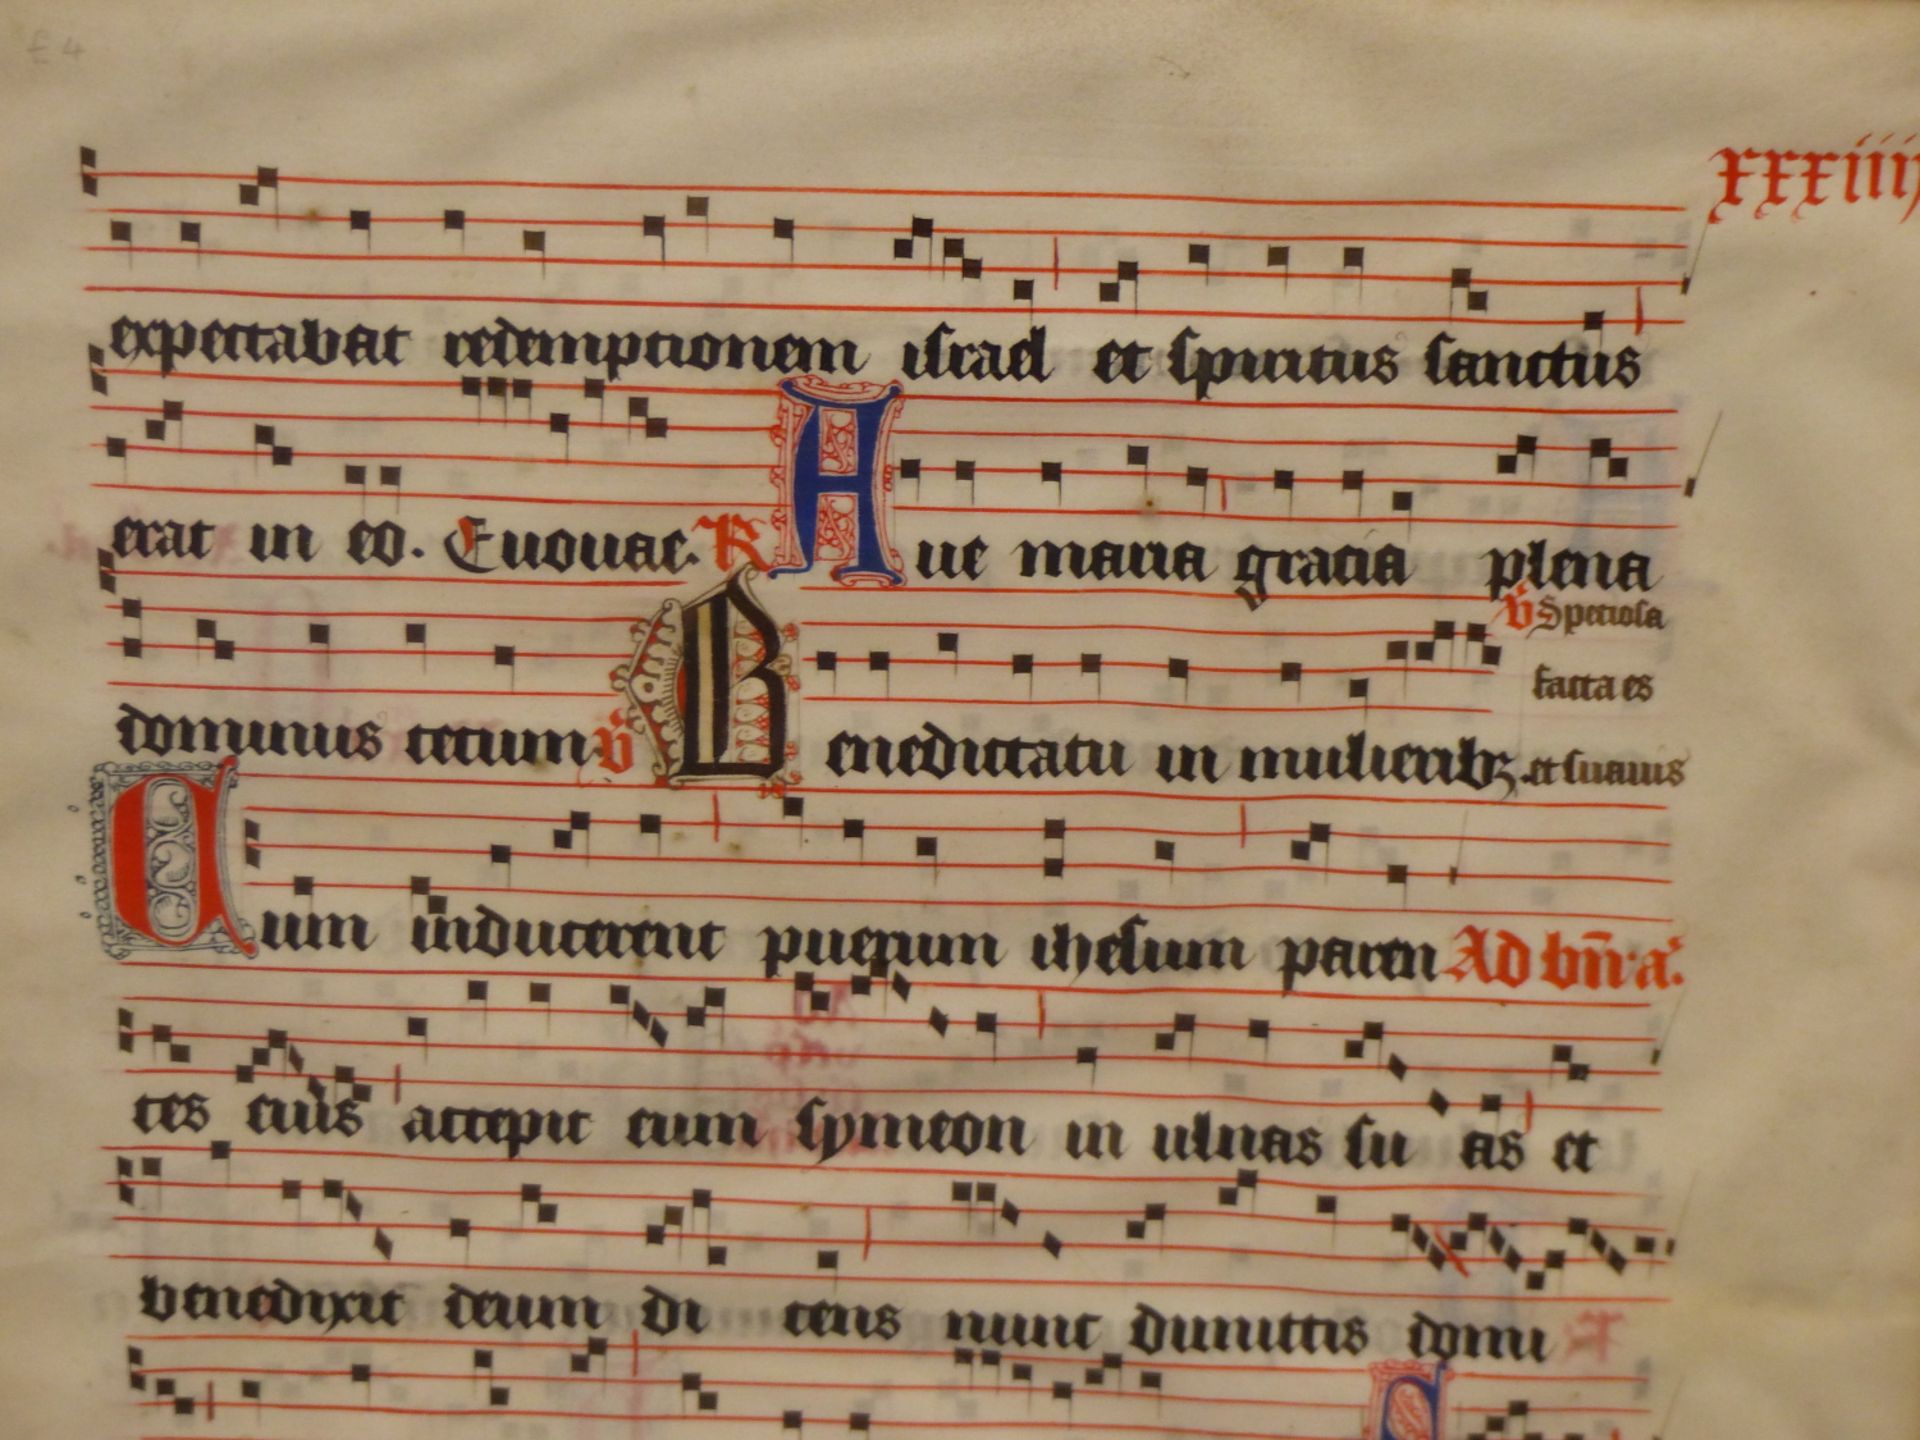 E 4
xxxiiij
expectabat redemptionem israel et spiritus sanctus
erat in eo. Euouae. R Aue maria gracia plena
V Speciosa
facta es
dominus tecum V Benedicta tu in mulieribꝫ. et suauis
Cum inducerent puerum ihesum paren Ad bn̄. a.
tes eius accepit eum symeon in ulnas su as et
benedixit deum di cens nunc dimittis domi
S